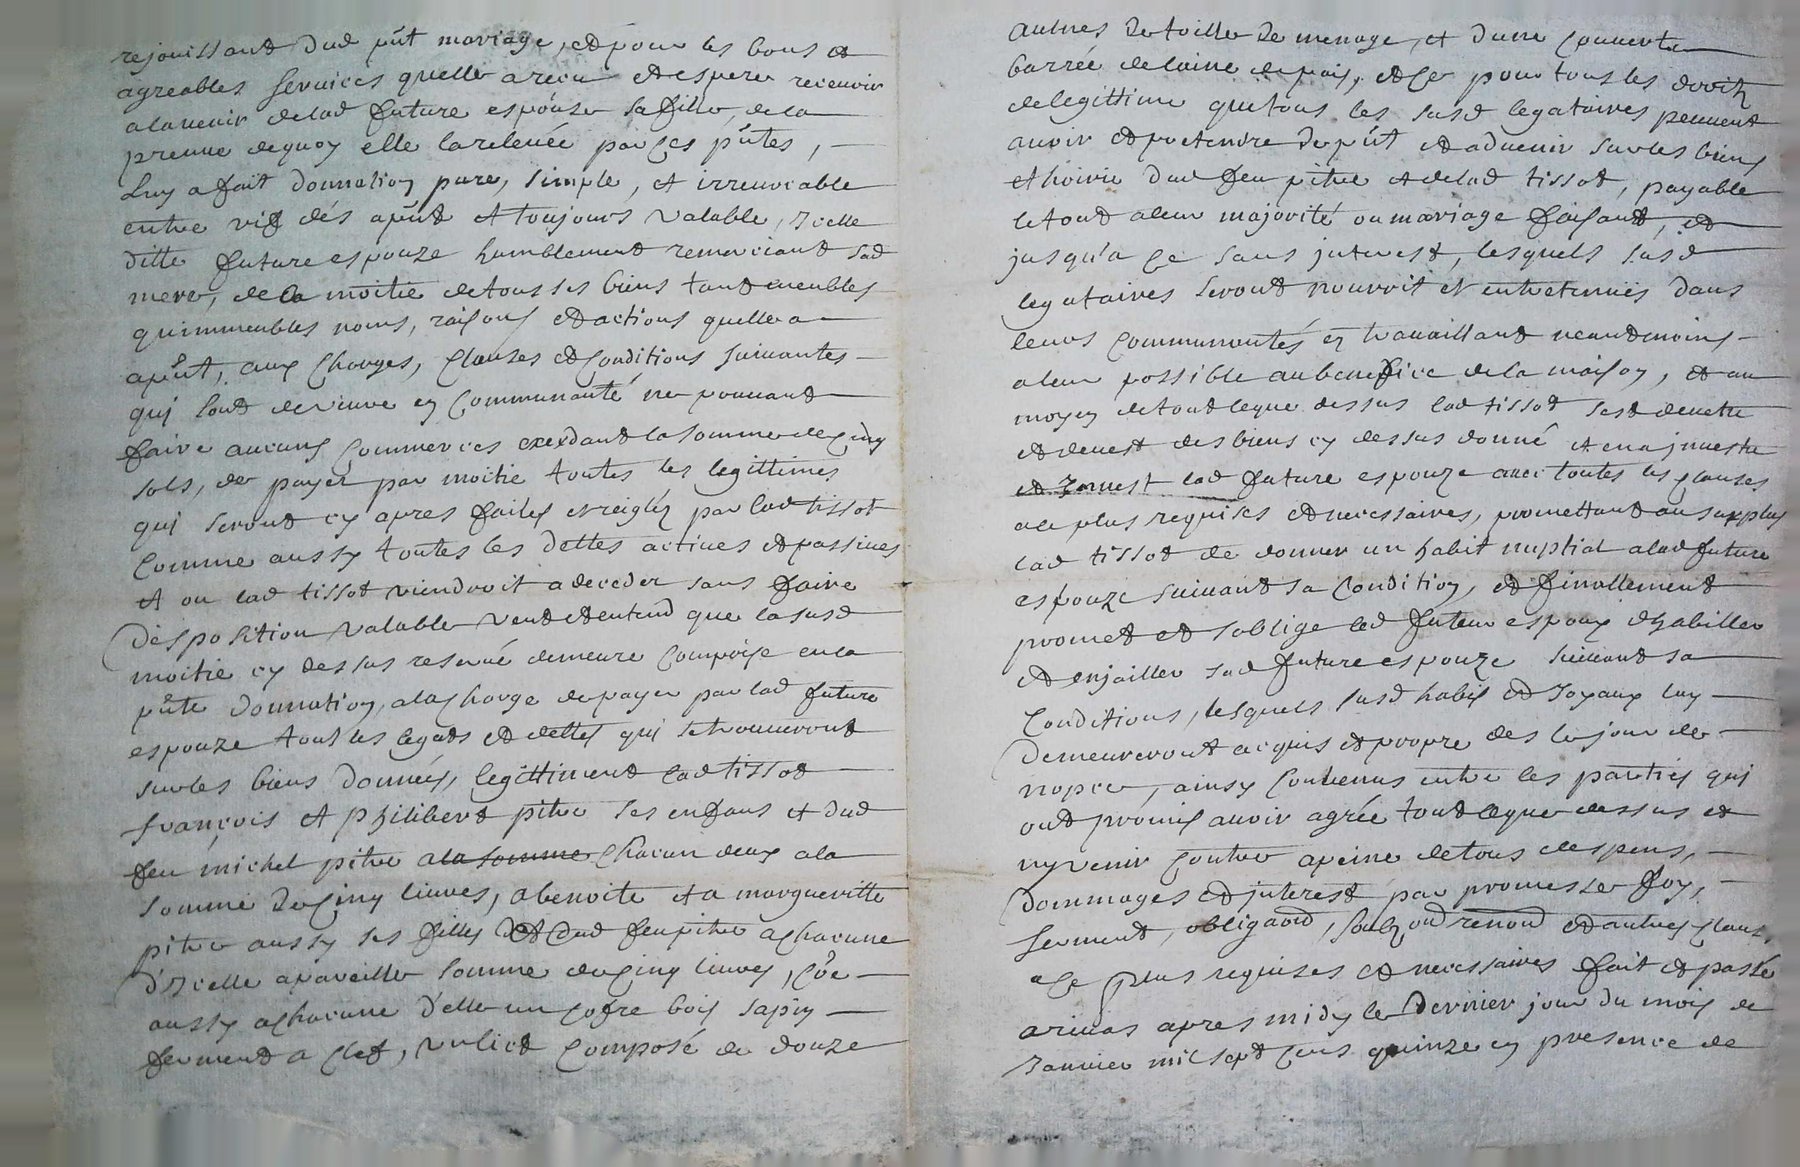 rejouissant dud pñt mariage, et pour les bons et
agreables services quelle a receu et espere recevoir
a lavenir de lad future espouse sa fille, de la
preuve de quoy elle la relevée par ces pñtes,
Luy a fait donnation pure, simple, et irrevocable
entre vif dés apñt et toujours valable, Icelle
ditte future espouze humblement remerciant sad
mere, de la moitie de tous ses biens tant meubles
quimmeubles noms, raisons et actions quelle a
apñt, aux charges, clauses et conditions suivantes
qui sont de vivre en communauté ne pouvant
faire aucuns commerces exedant la somme de cinq
sols, de payer par moitie toutes les legittimes
qui seront cy apres faites et reiglés par lad tissot
comme aussy toutes les dettes actives et passives
et ou lad tissot viendroit a deceder sans faire
disposition valable veut et entend que la susd
moitie cy dessus reservé demeure comprise en la
pñte donnation, a la charge de payer par lad future
espouze tous les legats et dettes qui se trouveront
sur les biens donnés, legittiment lad tissot
françois et philibert pitre ses enfans et dud
feu michel pitre a la somme chacun deux a la
somme de cinq livres, a benoite et a margueritte
pitre aussy ses filles et dud feu pitre a chacune
d'Icelle apareille somme de cinq livres,
aussy a chacune d'elle un cofre bois sapin
fermant a clef, un lict composé de douze
aulnes de toille de menage, et dune couverte
barrée de laine de pais, et ce pour tous les droits
de legittime que tous les susd legataires peuvent
avoir et pretendre de pñt et advenir sur les biens
et hoirie dud feu pitre et de lad tissot, payable
le tout a leur majorité ou mariage faisant, et
jusqu'a ce sans interest, lesquels susd
legataires seront nourrit et entretenues dans
leurs communautés en travaillant neantmoins
a leur possible au benefice de la maison, et au
moyen de tout ce que dessus lad tissot sest devetue
et devest des biens cy dessus donné et en a jnvestu
et Jnvest lad future espouze avec toutes les clauses
a ce plus requises et necessaires, promettant au surplus
lad tissot de donner un habit nuptial a lad future
espouze suivant sa condition, et finallement
promet et soblige led futeur espoux dhabiller
et enjailler sad future espouze suivant sa
conditions, lesquels susd habis et Joyaux luy
demeureront acquis et propre des le jour de
nopce, ainsy convenus entre les parties qui
ont promis avoir agrée tout ce que dessus et
ny venir contre a peine de tous despens,
dommages et jnterest par promesse foy,
serment, obligaõn, renoñ et autres claus.
a ce plus requises et necessaires fait et passé
a rivas apres midy le dernier jour du mois de
Janvier mil sept cens quinze en presence de